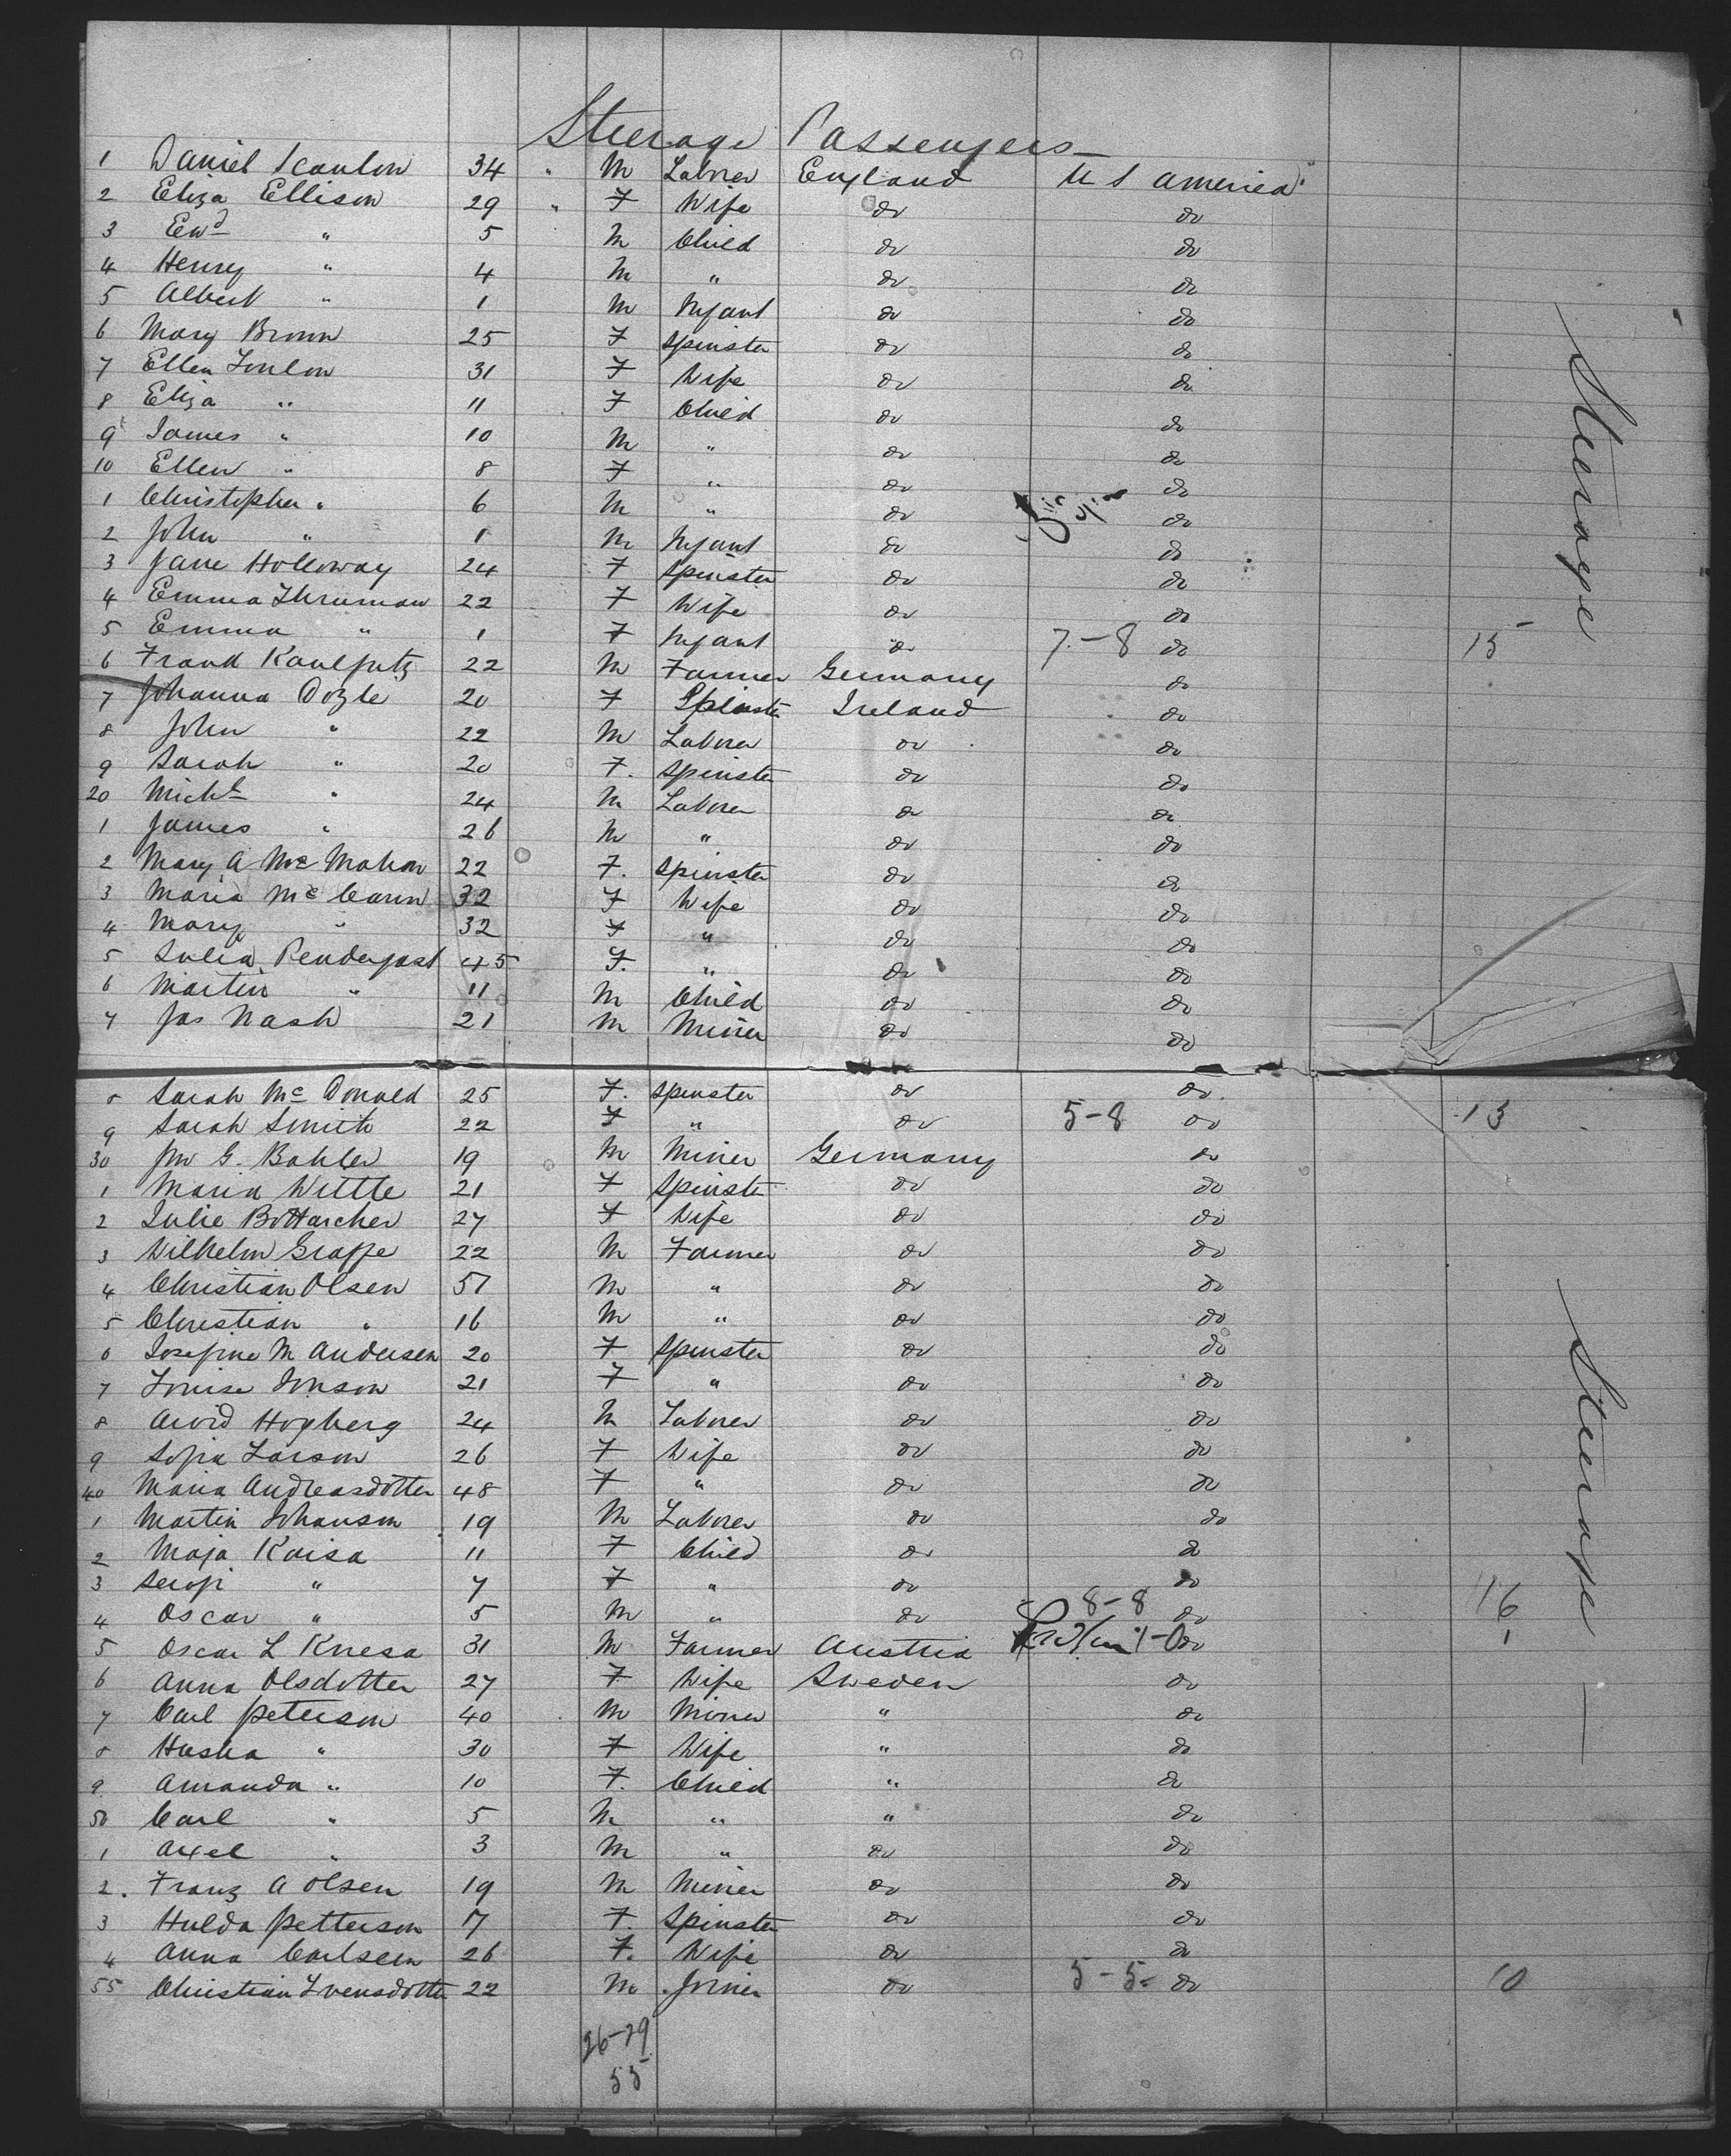 Steerage Passengers
1 Daniel Scanlon 34 " M Laborer England U S America
2 Eliza Ellison 29 " F Wife do do
3 Ewd " 5 M Child do do
4 Henry " 4 M " do do
5 Albert " 1 M Infant do do
6 Mary Brown 25 F Spinster do do
7 Ellen 31 F Wife do do
8 Eliza " 11 F Child do do
9 James " 10 M " do do
10 Ellen " 8 F " do do
1 Christopher " 6 M " do do
2 John " 1 M Infant do do
3 Jane Holloway 24 F Spinster do do
4 Emma Thruman 22 F Wife do do
5 Emma " 1 F Infant do 7-8 do 15
6 Frank Kaulfutz 22 M Farmer Germany do
7 Johanna Doyle 20 F Spinster Ireland do
8 John " 22 M Laborer do do
9 Sarah " 20 F. Spinster do do
20 Michl " 24 M Laborer do do
1 James " 26 M " do do
2 Mary A McMahon 22 F. Spinster do do
3 Maria McCann 32 F Wife do do
4 Mary " 32 F " do do
5 Julia Pendergast 45 F. " do do
6 Martin " 11 M Child do do
7 Jas Nash 21 M Miner do do
8 Sarah McDonald 25 F. Spinster do do
9 Sarah Smith 22 F " do 5-8 do 13
30 Jno G. Bahler 19 M Miner Germany do
1 Maria Wittle 21 F Spinster do do
2 Julie Bottarcher 27 F Wife do do
3 Wilhelm Grappe 22 M Farmer do do
4 Christian Olsen 51 M " do do
5 Christian " 16 M " do do
6 Josefine M Andersen 20 F Spinster do do
7 Louise Jonson 21 F " do do
8 Arvid Hogberg 24 M Laborer do do
9 Sofia Larson 26 F Wife do do
40 Maria Andreasdotter 48 F " do do
1 Martin Johanson 19 M Laborer do do
2 Maja Kaisa 11 F Child do do
3 " 7 F " do do
4 Oscar " 5 M " do 8-8 do 16
5 Oscar L Kriesa 31 M Farmer Austria 1-0 do 1
6 Anna Olsdotter 27 F Wife Sweden do
7 Carl Peterson 40 M Miner " do
8 " 30 F Wife " do
9 Amanda " 10 F. Child " do
50 Carl " 5 M " " do
1 Axel " 3 M " do do
2. Franz A Olsen 19 M Miner do do
3 Hulda Petterson 17 F. Spinster do do
4 Anna Carlsen 26 F. Wife do do
55 Christian Svensdotter 22 M Joiner do 5-5 do 10
26-29
55
Steerage
Steerage